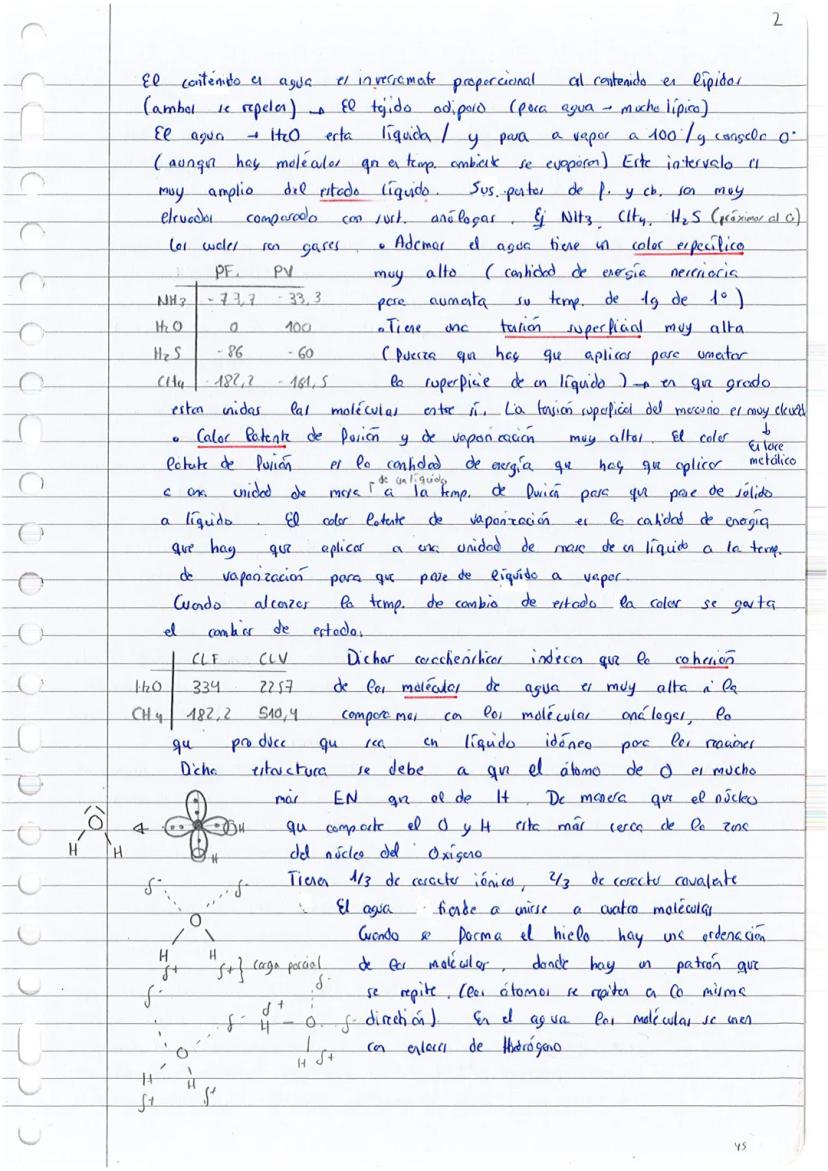 2
El contenido en agua es inversamente proporcional al contenido en lípidos
(ambos se repelen) → El tejido adiposo (poca agua → mucho lípico)
El agua → H2O esta líquida / y pasa a vapor a 100 / y congela 0°
(aunque hay moléculas que en temp. ambiente se evaporan) Este intervalo es
muy amplio del estado líquido. Sus. puntos de f. y eb. son muy
elevados comparado con sust. análogas. Ej NH3, CH4, H2S (próximos al 0)
Los cuales son gases. • Ademas el agua tiene un calor específico
muy alto (cantidad de energía necesaria
para aumenta su temp. de 1g de 1°)
PF. PV
NH3 -77,7 -33,3
H2O 0 100
H2S -86 -60
CH4 -182,2 -161,5
• Tiene una tensión superficial muy alta
(fuerza que hay que aplicar para umentar
la superficie de un líquido) → en que grado
estan unidas las moléculas entre sí. La tensión superficial del mercurio es muy elevada
↓
Enlace
metálico
• Calor latente de fusión y de vaporización muy altos. El calor
latente de fusión es la cantidad de energía que hay que aplicar
a una unidad de masa de un líquido a la temp. de fusión para que pase de sólido
a líquido. El calor latente de vaporización es la catidad de energía
que hay que aplicar a una unidad de masa de un líquido a la temp.
de vaporización para que pase de líquido a vapor.
Cuando alcanzas la temp. de cambio de estado la calor se gasta
el cambios de estado.
CLF CLV
H2O 334 2257
CH4 182,2 510,4
Dichas características indecan que la cohesión
de las moléculas de agua es muy alta si la
comparamos con las moléculas análogas, lo
que produce que sea un líquido idóneo para las reaciones
Dicha estructura se debe a que el átomo de O es mucho
más EN que el de H. De manera que el núcleo
que comparte el O y H esta más cerca de la zona
del núcleo del Oxígeno
O H H
H H
Tienen 1/3 de caracter iónico, 2/3 de caracter covalente
El agua tiende a unirse a cuatro moléculas
Cuando se forma el hielo hay una ordenación
de las moléculas, donde hay un patrón que
se repite. (los átomos se repiten en la misma
dirección) En el agua las moléculas se unen
con enlaces de Hidrógeno
δ- δ-
O
H H
δ+ δ+} carga parcial
δ- δ- δ+ δ-
H - O δ-
O H δ+
H H
δ+ δ+
45